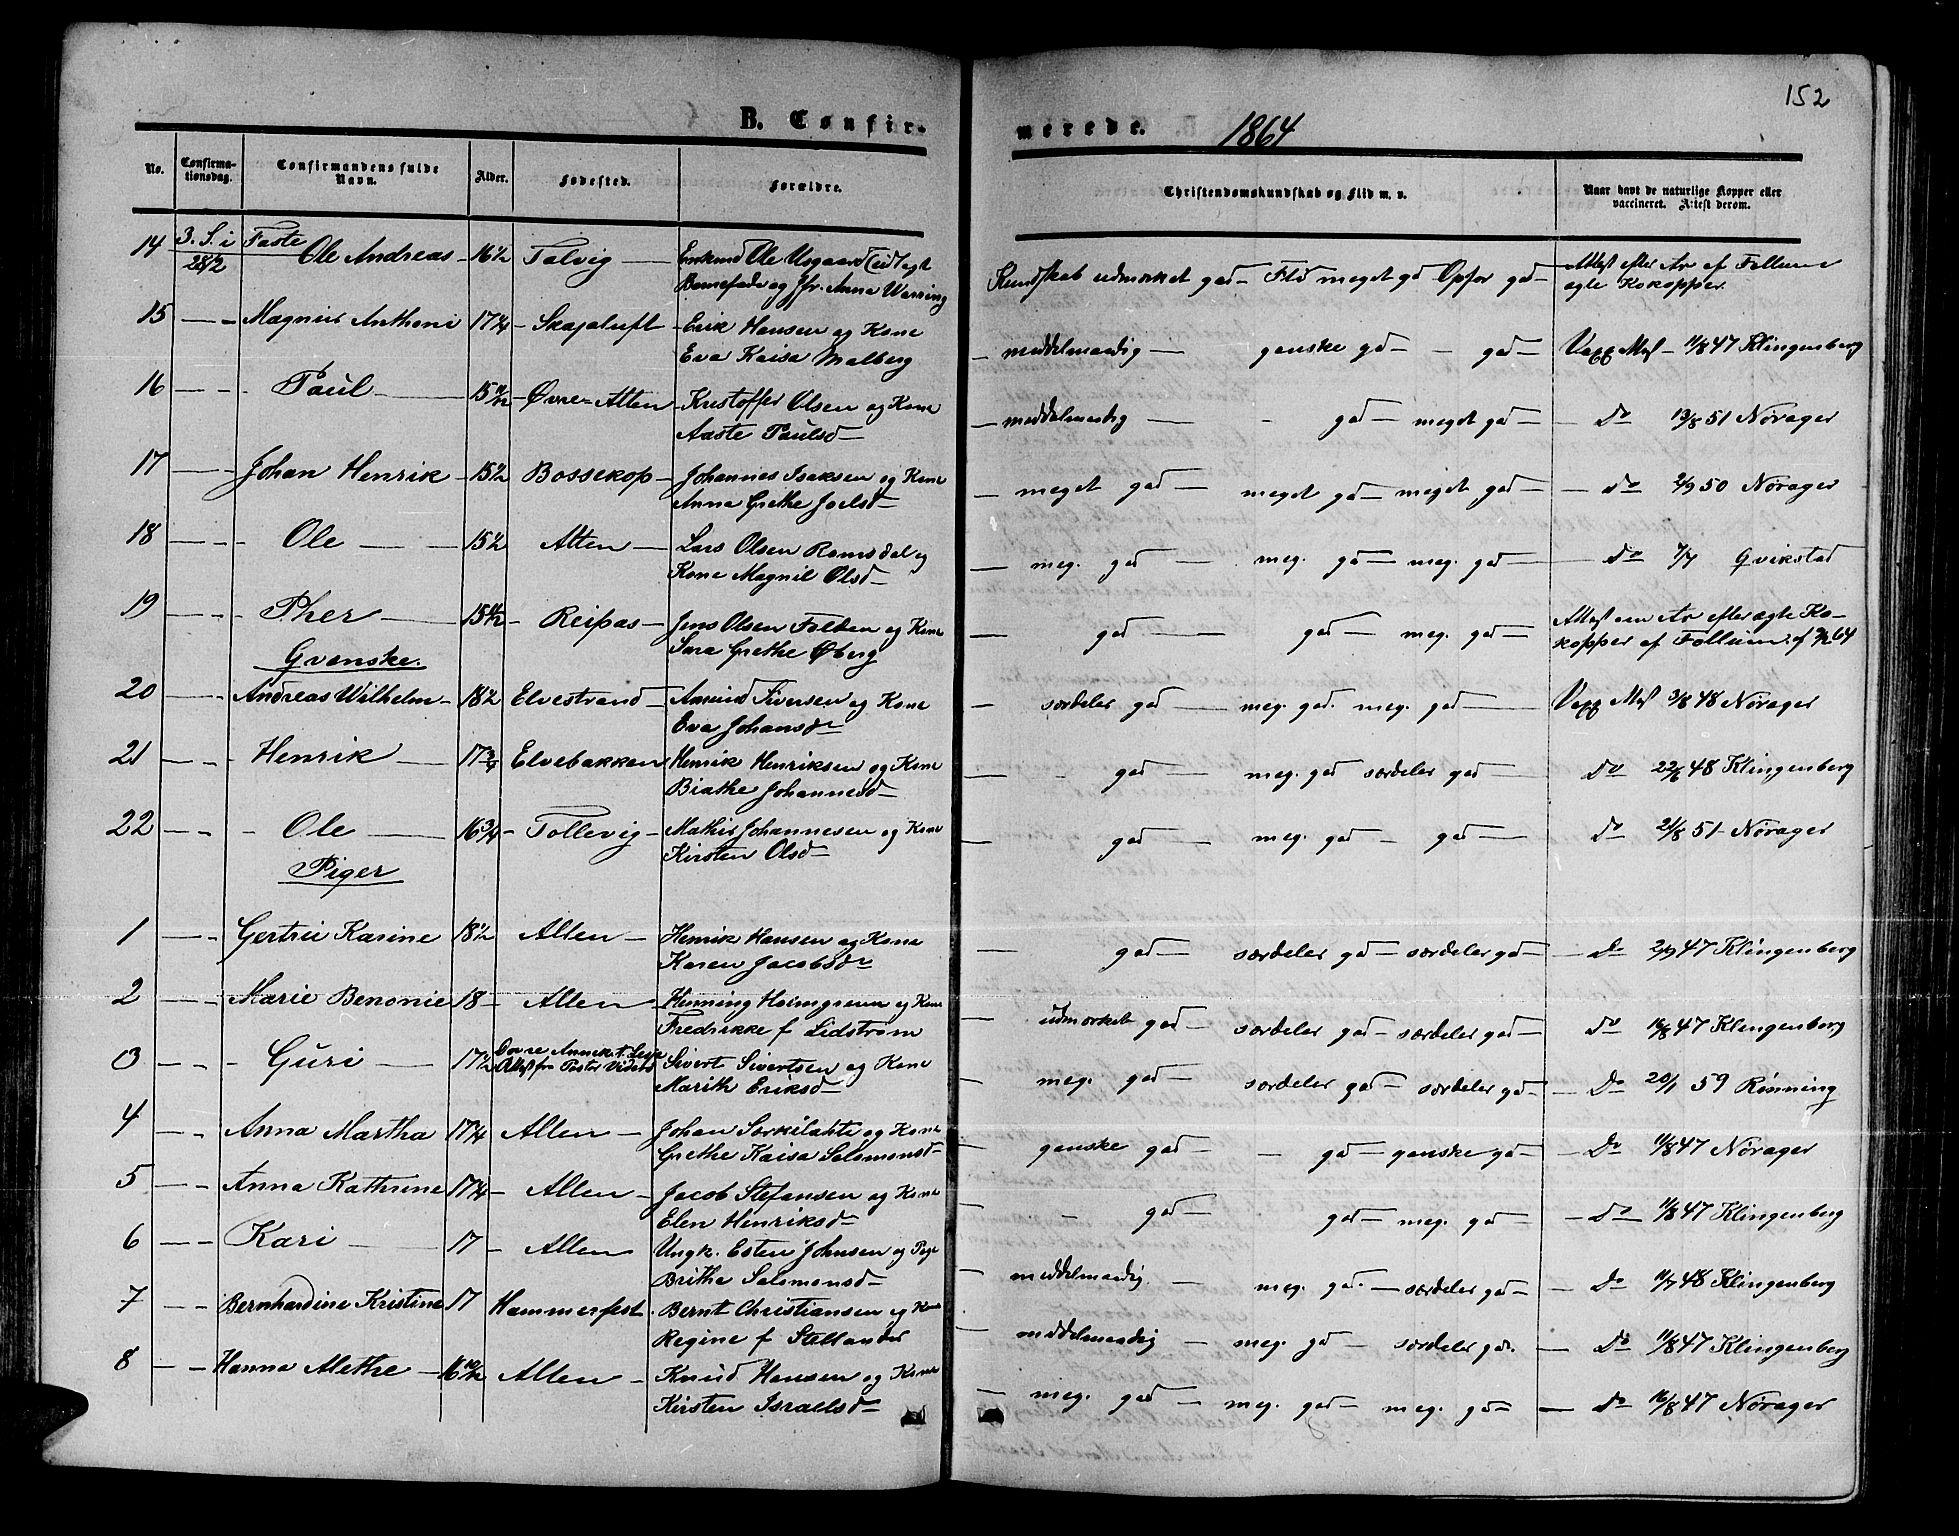 152
B. Confir-
merede. 1864
No.
Confirma-
tionsdag.
Confirmandens fulde
Navn.
Alder.
Fødested.
Forældre.
Christendomskundskab og Flid m. v.
Naar havt de naturlige Kopper eller
vaccineret. Attest derom.
14 3. S. i Faste 28/2 Ole Andreas 16½ Talvig Enkemd Ole Usgaard
og Jfr. Anna Warring
Kundskab udmærket god Flid meget gd Opfør gd Attest efter
ægte Kokopper
15 Magnus Anthoni 17¼ Skajaluft Erik Hansen og Kone
Eva Kaisa Malberg
middelmaadig ganske gd gd Vaxx Att 11/8 47 Klingenberg
16 Paul 15 Øvre-Alten Kristoffer Olsen og Kone
Aaste Paulsd
middelmaadig god meget god Do 13/8 51 Nørager
17 Johan Henrik 15½ Bossekop Johannes Isaksen og Kone
Anna Grethe Joelsd
meget god meget gd meget god Do 2/9 50 Nørager
18 Ole 15½ Alten Lars Olsen Romsdal og
Kone Magnil Olsd
meg. god meg. gd meg. god Do 7/7 Qvikstad
19 Pher 15 Reipas Jens Olsen Folden og Kone
Sara Grethe Øberg
god god meg. god Attest om Ar efter ægte Ko-
kopper af Follum af 64
Qvænske.
20 Andreas Wilhelm 18½ Elvestrand Amund Iversen og Kone
Eva Johansd
særdeles god meg. god. meg. god Vaxx Att 3/8 48 Nørager
21 Henrik 17¾ Elvebakken Henrik Henriksen og Kone
Birthe Johannesd
god meg. god særdeles god Do 22/6 48 Klingenberg
22 Ole 16¾ Tollevig Mathis Johannesen og Kone
Kirsten Olsd
god meg. god god Do 21/8 51 Nørager
Piger
1 Gertrue Karine 18½ Alten Henrik Hansen og Kone
Karen Jacobsd
god særdeles god særdeles god Do 2/9 47 Klingenberg
2 Marie Benonie 18 Alten Henning Holmgreen og Kone
Fredrikke f Lidstrøm
udmærket god særdeles god særdeles god Do 16/8 47 Klingenberg
3 Guri 17½ Dovre Annex t. Lesje
Attest fra Pastor
Sivert Sivertsen og Kone
Marith Eriksd
meg. god særdeles god særdeles god Do 20/1 59 Rønning
4 Anna Martha 17¼ Alten Johan Særkilahti og Kone
Grethe Kaisa Salomonsd
ganske god god ganske gd Do 11/8 47 Nørager
5 Anna Kathrine 17¼ Alten Jacob Stefansen og Kone
Elen Henriksd
god god meg. god Do 11/8 47 Klingenberg
6 Kari 17 Alten Ungk. Esten Johnsen og Pige
Brithe Salomonsd
middelmaadig meg. god. særdeles god Do 11/7 48 Klingenberg
7 Bernhardine Kristine 17 Hammerfest Bernt Christiansen og Kone
Regine f Stellander
middelmaadig meg. gd særdeles gd. Do 11/8 47 Klingenberg
8 Hanna Alethe 16 10/12 Alten Knud Hansen og Kone
Kirsten Israelsd
meg. god meg. god meg. gd Do 16/8 47 Nørager